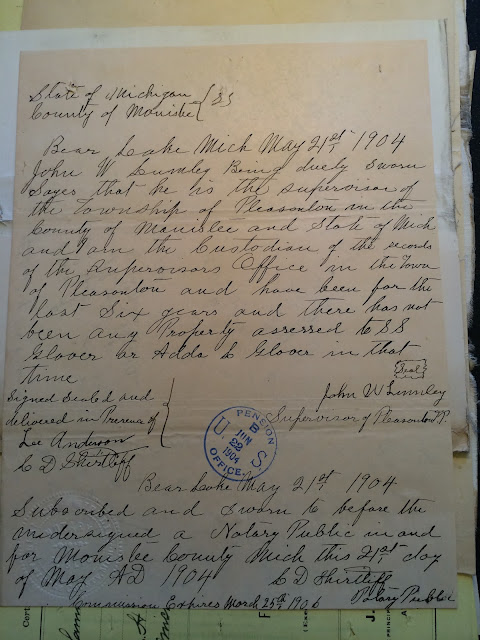 State of Michigan } SS
County of Manistee
Bear Lake Mich May 21st 1904
John W Lumley Being duely sworn
Sayes that he is the supervisor of
the Township of Pleasonton in the
County of Manistee and State of Mich
and am the Custodian of the records
of the Supervisors Office in the Town
of Pleasonton and have been for the
last Six years and there has not
been any Property assessed to SS
Glover or Adda L Glover in that
time
Seal
Signed Sealed and
delivered in Presence of
Lee Anderson
C D Shirtliff
John W Lumley
Supervisor of Pleasonton
U.S. PENSION OFFICE.
JUN
22
1904
Bear Lake May 21st 1904
Subscribed and Sworn to before the
undersigned a Notary Public in and
for Manistee County Mich this 21st day
of May AD 1904
C D Shirtliff
Commission Expires March 25th 1906 Notary Public
Cert